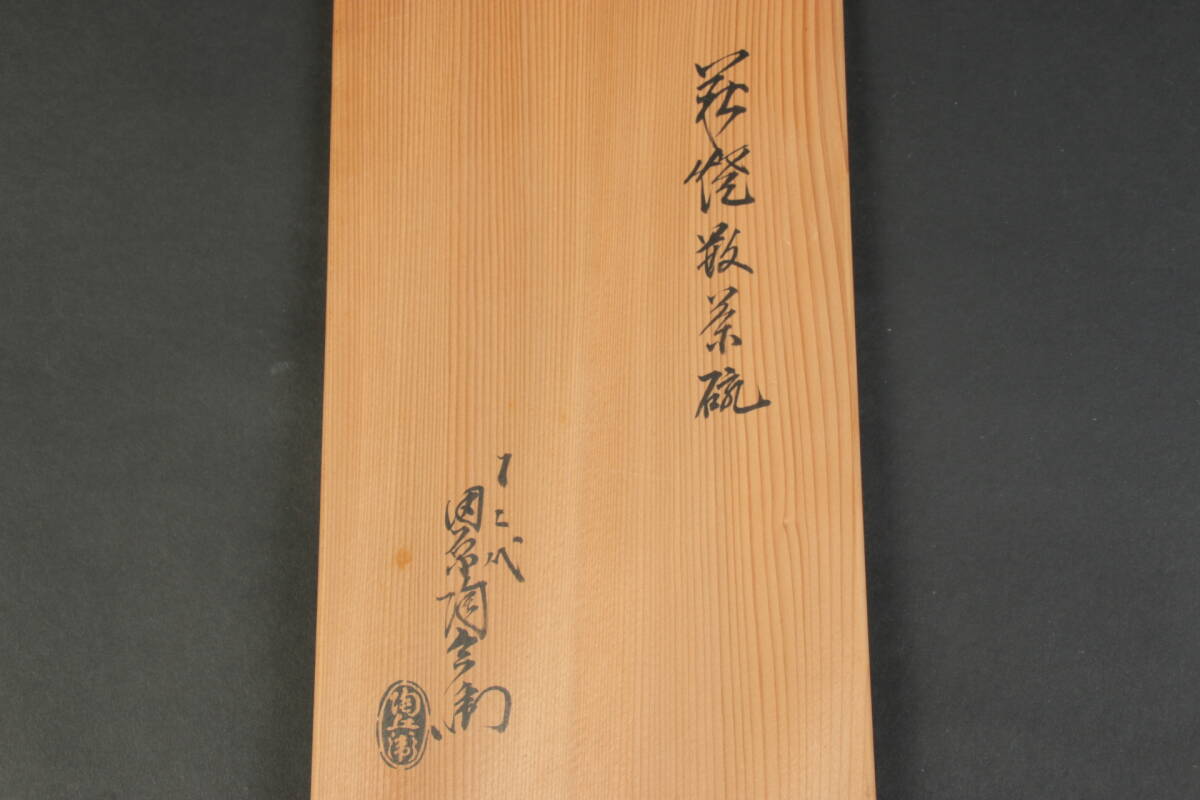 萩焼数茶碗
十二代
田原陶兵衛
陶兵衛